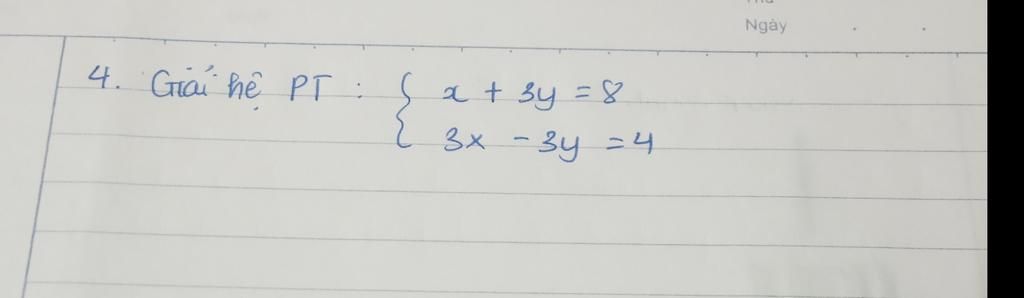 Ngày
4. Giải hệ PT : { x + 3y = 8
3x - 3y = 4